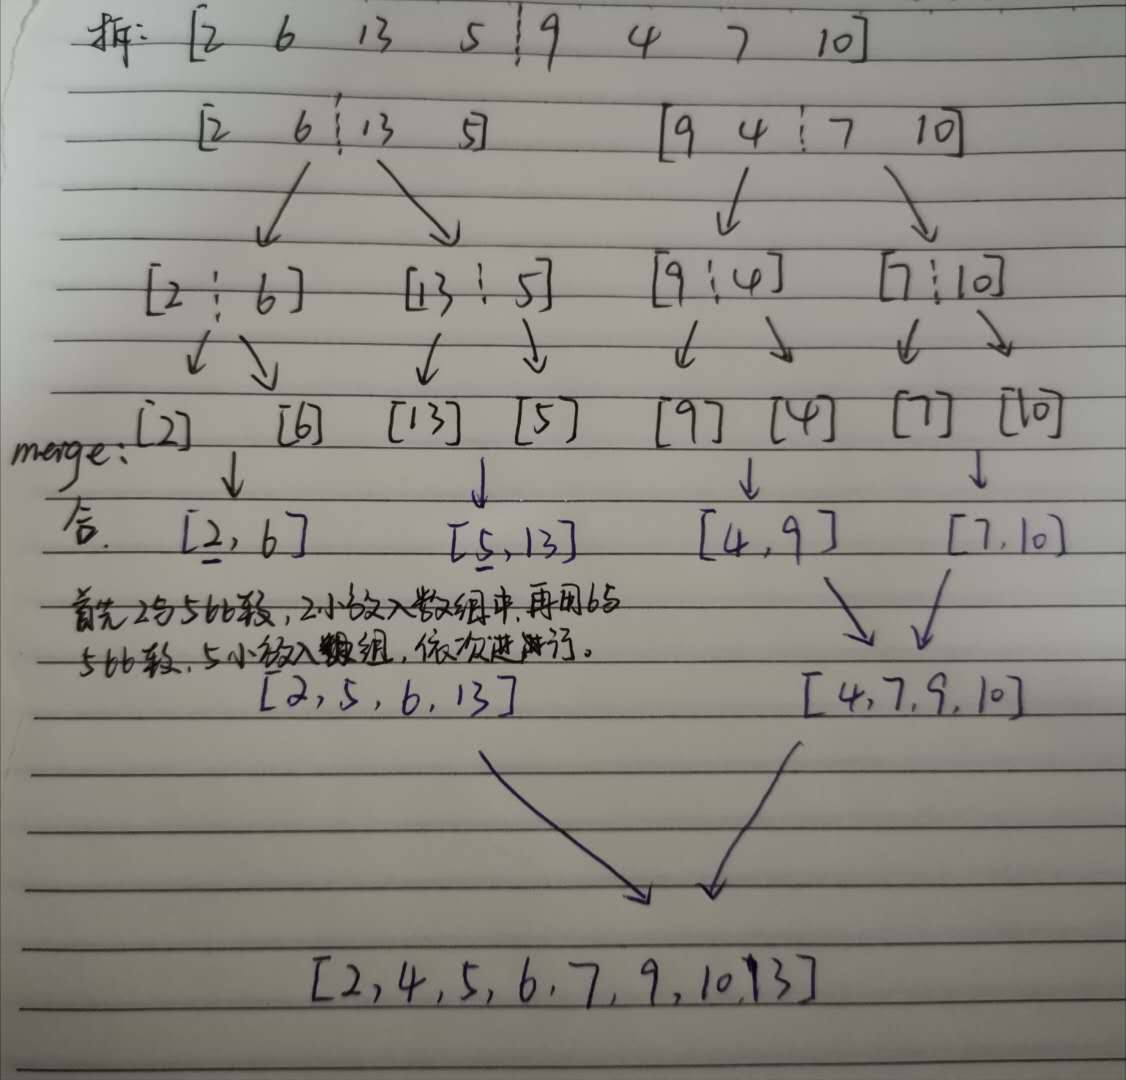 拆: [2 6 13 5 9 4 7 10]
[2 6 13 5] [9 4 7 10]
[2 6] [13 5] [9 4] [7 10]
[2] [6] [13] [5] [9] [4] [7] [10]
merge:
合. [2, 6] [5, 13] [4, 9] [7, 10]
首先2与5比较,2小放入数组中,再用6与
5比较,5小放入数组,依次进行。
[2, 5, 6, 13] [4, 7, 9, 10]
[2, 4, 5, 6, 7, 9, 10, 13]